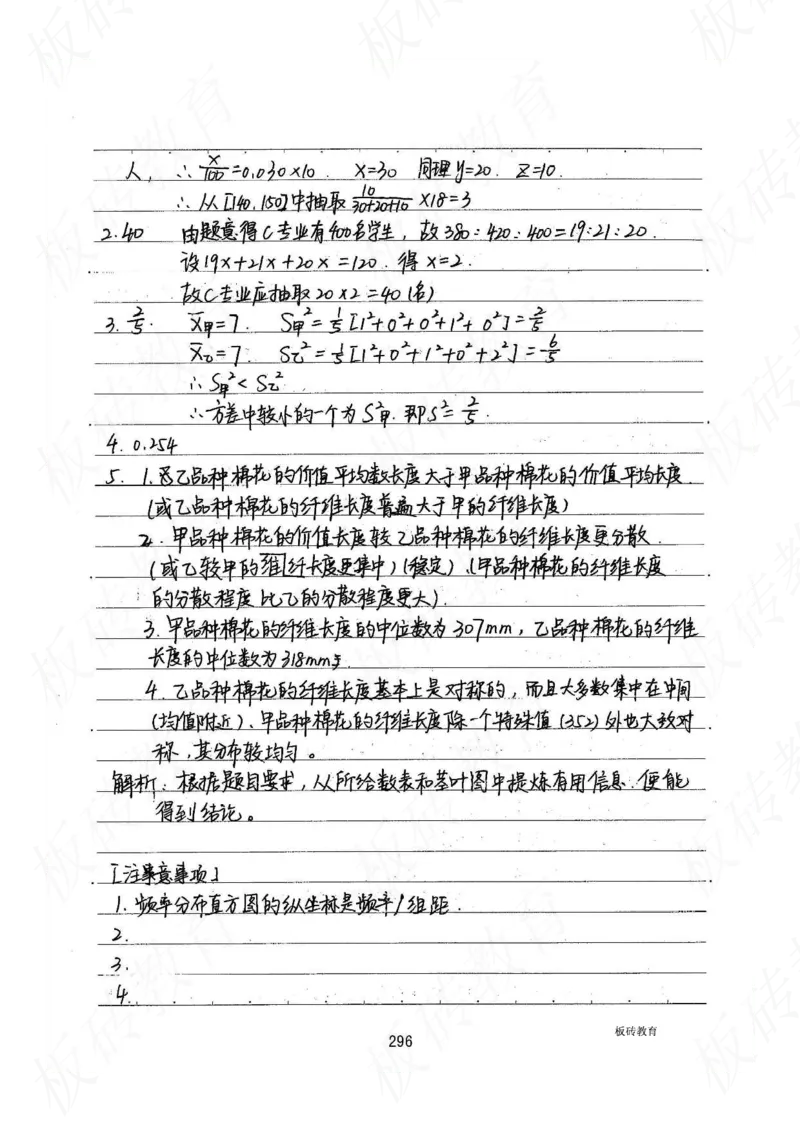 人, ∴ x/100 =0.030×10. X=30 同理y=20. Z=10.
∴ 从[140,150]中抽取 10/(30+20+10) ×18=3
2.40 由题意得C专业有400名学生, 故380:420:400=19:21:20.
设19x+21x+20x=120. 得x=2.
故C专业应抽取20×2=40(名)
3. 2/5. X̄甲=7. S甲²=1/5[1²+0²+0²+1²+0²]=2/5
X̄乙=7. S乙²=1/5[1²+0²+1²+0²+2²]=6/5
∴ S甲²<S乙²
∴方差中较小的一个为S²甲. 即S²=2/5.
4. 0.254
5. 1.因乙品种棉花的价值平均数长度大于甲品种棉花的价值平均长度.
(或乙品种棉花的纤维长度普遍大于甲的纤维长度)
2. 甲品种棉花的价值长度较乙品种棉花的纤维长度更分散.
(或乙较甲的维纤长度更集中)(稳定)、(甲品种棉花的纤维长度
的分散程度比乙的分散程度更大).
3. 甲品种棉花的纤维长度的中位数为307mm, 乙品种棉花的纤维
长度的中位数为318mm
4. 乙品种棉花的纤维长度基本上是对称的, 而且大多数集中在中间
(均值附近)、甲品种棉花的纤维长度除一个特殊值(352)外也大致对
称, 其分布较均匀。
解析: 根据题目要求, 从所给数表和茎叶图中提炼有用信息. 便能
得到结论。
[注意事项]
1. 频率分布直方图的纵坐标是频率/组距.
2.
3.
4.
板砖教育
296